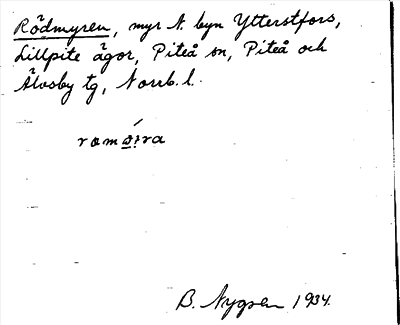 Rödmyren, myr N. byn Ytterstfors,
Lillpite ägor, Piteå sn, Piteå och
Älvsby tg, Norrb. l.
B. Nygren 1934.